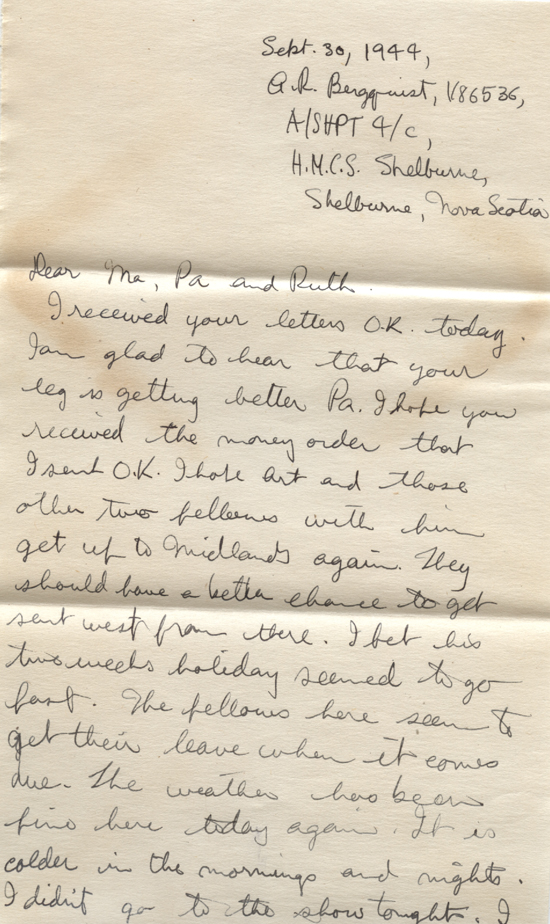 Sept. 30, 1944,
A.R. Bergquist, V86536,
A/SHPT 4/c,
H.M.C.S. Shelburne,
Shelburne, Nova Scotia
Dear Ma, Pa and Ruth.
I received your letters O.K. today.
I am glad to hear that your
leg is getting better Pa. I hope you
received the money order that
I sent O.K. I hope Art and those
other two fellows with him
get up to Midlands again. They
should have a better chance to get
sent west from there. I bet his
two weeks holiday seemed to go
fast. The fellows here seem to
get their leave when it comes
due. The weather has been
fine here today again. It is
colder in the mornings and nights.
I didn't go to the show tonght. I